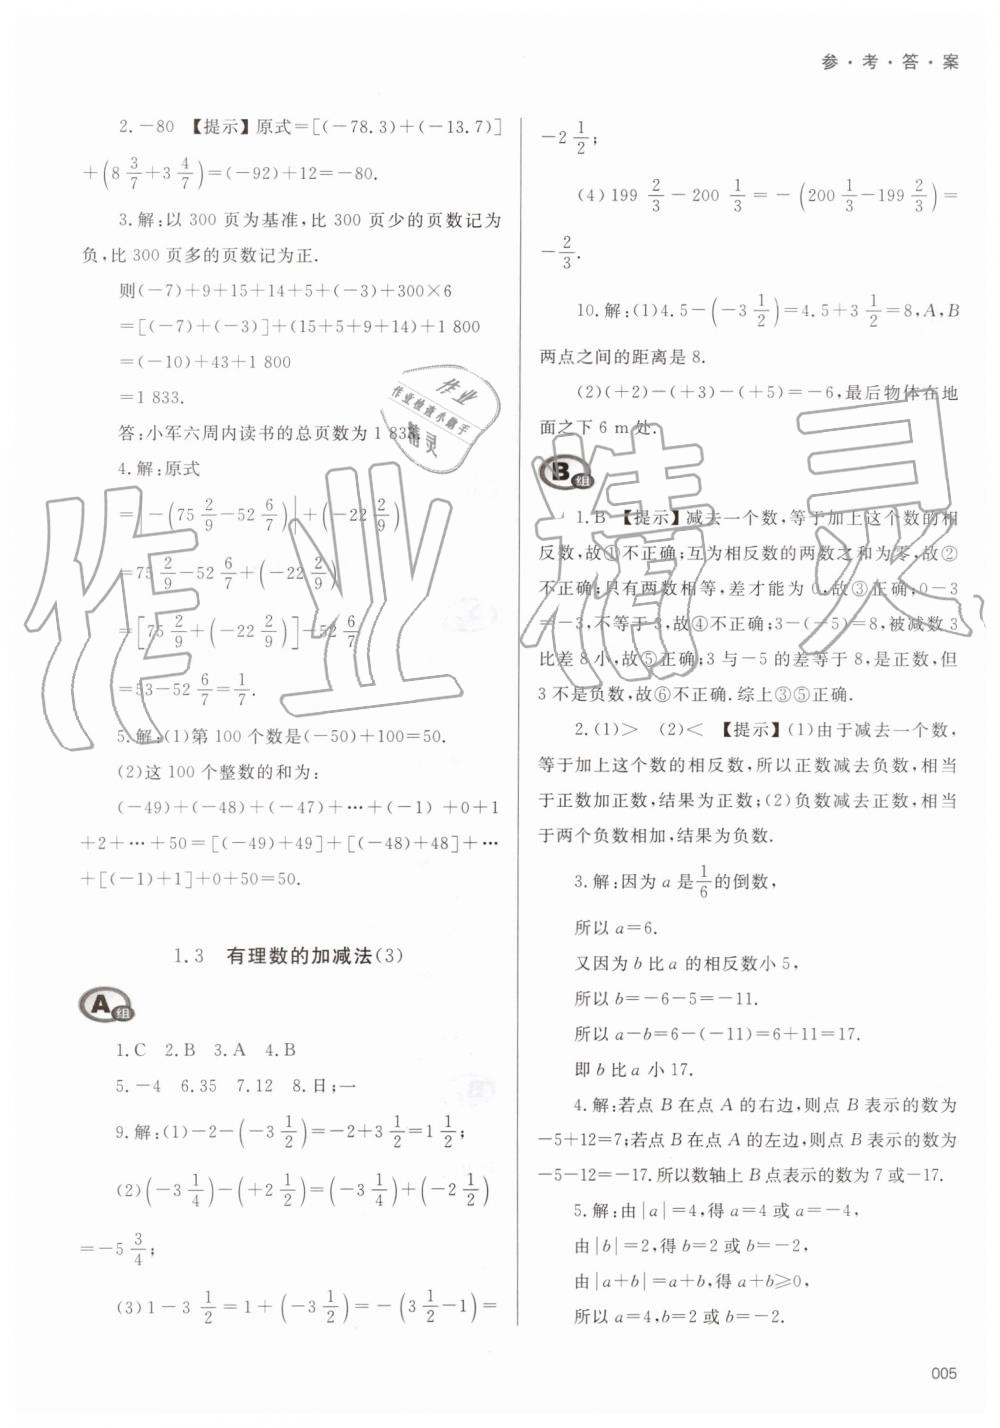 参·考·答·案
2.－80 【提示】原式＝[(－78.3)＋(－13.7)]
＋(8 3/7＋3 4/7)＝(－92)＋12＝－80.
3.解:以 300 页为基准,比 300 页少的页数记为
负,比 300 页多的页数记为正.
则(－7)＋9＋15＋14＋5＋(－3)＋300×6
＝[(－7)＋(－3)]＋(15＋5＋9＋14)＋1 800
＝(－10)＋43＋1 800
＝1 833.
答:小军六周内读书的总页数为 1 833.
4.解:原式
＝|－(75 2/9－52 6/7)|＋(－22 2/9)
＝75 2/9－52 6/7＋(－22 2/9)
＝[75 2/9＋(－22 2/9)]－52 6/7
＝53－52 6/7＝1/7.
5.解:(1)第 100 个数是(－50)＋100＝50.
(2)这 100 个整数的和为:
(－49)＋(－48)＋(－47)＋…＋(－1)＋0＋1
＋2＋…＋50＝[(－49)＋49]＋[(－48)＋48]＋…
＋[(－1)＋1]＋0＋50＝50.
1.3 有理数的加减法(3)
A组
1.C 2.B 3.A 4.B
5.－4 6.35 7.12 8.日;一
9.解:(1)－2－(－3 1/2)＝－2＋3 1/2＝1 1/2;
(2)(－3 1/4)－(＋2 1/2)＝(－3 1/4)＋(－2 1/2)
＝－5 3/4;
(3)1－3 1/2＝1＋(－3 1/2)＝－(3 1/2－1)＝
－2 1/2;
(4)199 2/3－200 1/3＝－(200 1/3－199 2/3)＝
－2/3.
10.解:(1)4.5－(－3 1/2)＝4.5＋3 1/2＝8,A,B
两点之间的距离是 8.
(2)(＋2)－(＋3)－(＋5)＝－6,最后物体在地
面之下 6 m 处.
B组
1.B 【提示】减去一个数,等于加上这个数的相
反数,故①不正确;互为相反数的两数之和为零,故②
不正确;只有两数相等,差才能为 0,故③正确;0－3
＝－3,不等于 3,故④不正确;3－(－5)＝8,被减数 3
比差 8 小,故⑤正确;3 与－5 的差等于 8,是正数,但
3 不是负数,故⑥不正确.综上③⑤正确.
2.(1)＞ (2)＜ 【提示】(1)由于减去一个数,
等于加上这个数的相反数,所以正数减去负数,相当
于正数加正数,结果为正数;(2)负数减去正数,相当
于两个负数相加,结果为负数.
3.解:因为 a 是1/6的倒数,
所以 a＝6.
又因为 b 比 a 的相反数小 5,
所以 b＝－6－5＝－11.
所以 a－b＝6－(－11)＝6＋11＝17.
即 b 比 a 小 17.
4.解:若点 B 在点 A 的右边,则点 B 表示的数为
－5＋12＝7;若点 B 在点 A 的左边,则点 B 表示的数为
－5－12＝－17.所以数轴上 B 点表示的数为 7 或－17.
5.解:由|a|＝4,得 a＝4 或 a＝－4,
由|b|＝2,得 b＝2 或 b＝－2,
由|a＋b|＝a＋b,得 a＋b≥0,
所以 a＝4,b＝2 或 b＝－2.
005
作业
作业检查小助手
精灵
作业精灵